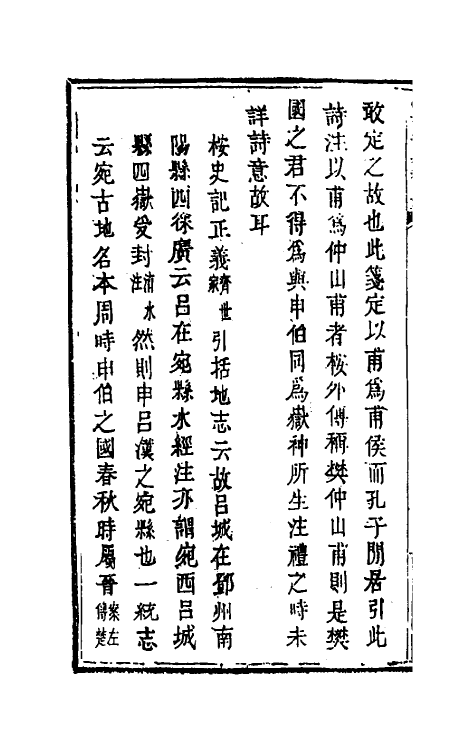 敢定之故也此箋定以甫爲甫侯而孔子閒居引此
詩注以甫爲仲山甫者桉外傳稱樊仲山甫則是樊
國之君不得爲與申伯同爲嶽神所生注禮之時未
詳詩意故耳
桉史記正義齊世家引括地志云故呂城在鄧州南
陽縣西徐廣云呂在宛縣水經注亦謂宛西呂城
四嶽受封淯水注然則申呂漢之宛縣也一統志
云宛古地名本周時申伯之國春秋時屬晉案左傳楚